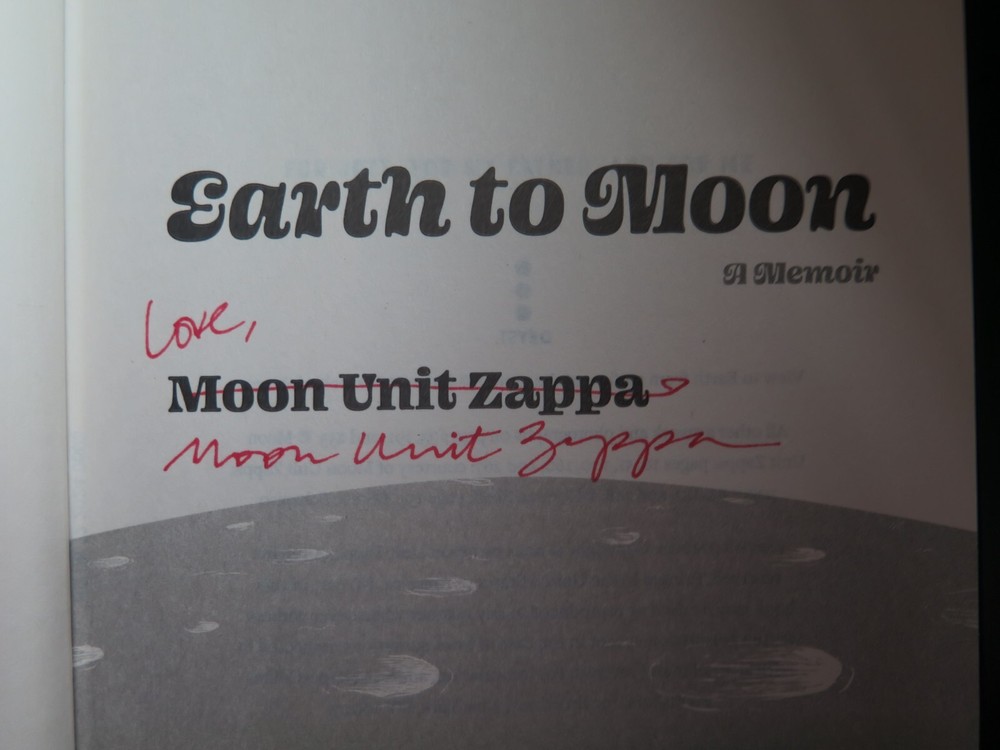 Earth to Moon
A Memoir
Love,
Moon Unit Zappa
Moon Unit Zappa